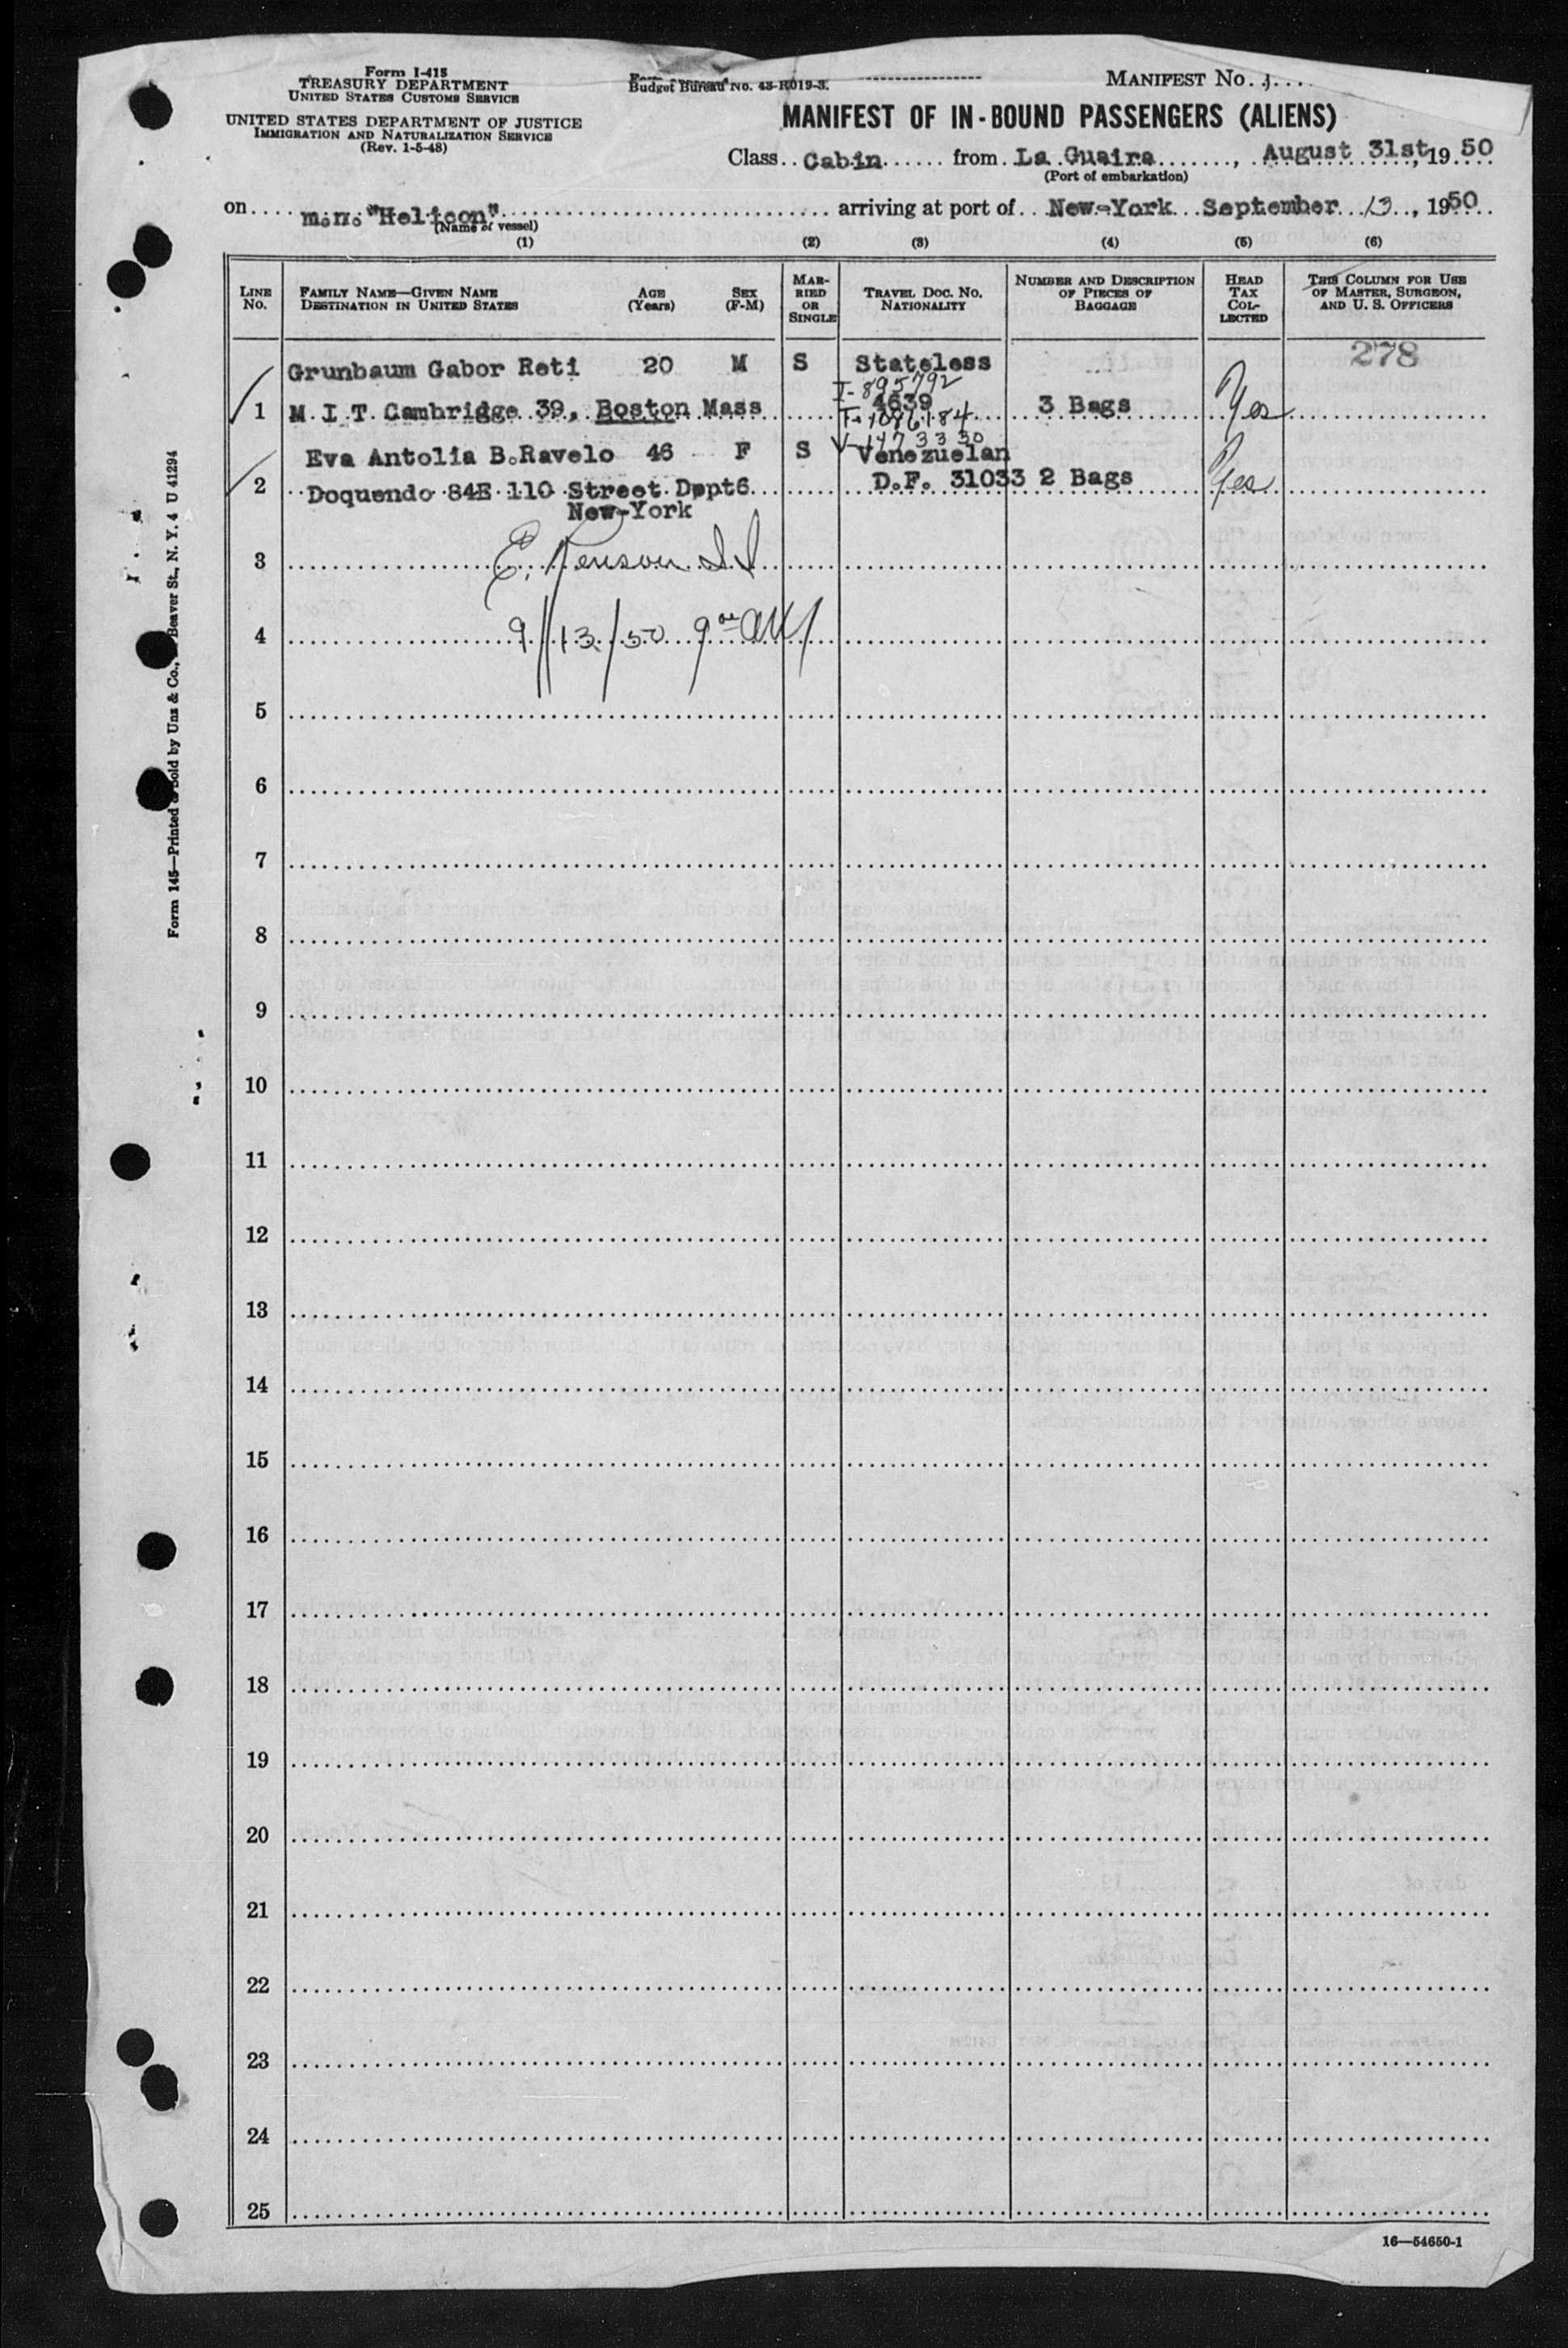 Form I-415
TREASURY DEPARTMENT
UNITED STATES CUSTOMS SERVICE
UNITED STATES DEPARTMENT OF JUSTICE
IMMIGRATION AND NATURALIZATION SERVICE
(Rev. 1-5-48)
Budget Bureau No. 43-R019-3.
MANIFEST NO.
MANIFEST OF IN-BOUND PASSENGERS (ALIENS)
Class Cabin from La Guaira, August 31st, 1950
(Port of embarkation)
on "Helicon" arriving at port of New-York September 13, 1950
(Name of vessel)
(1) (2) (3) (4) (5) (6)
LINE NO.
FAMILY NAME—GIVEN NAME
DESTINATION IN UNITED STATES
AGE (Years)
SEX (F-M)
MARRIED OR SINGLE
TRAVEL DOC. NO. NATIONALITY
NUMBER AND DESCRIPTION OF PIECES OF BAGGAGE
HEAD TAX COLLECTED
THIS COLUMN FOR USE OF MASTER, SURGEON, AND U. S. OFFICERS
278
Grunbaum Gabor Reti 20 M S Stateless
I-895792
1 M.I.T. Cambridge 39, Boston Mass 4639 3 Bags Yes
V-1473330
Eva Antolia B.Ravelo 46 F S Venezuelan
2 Doquendo 84E 110 Street Dppt6 D.F. 31033 2 Bags Yes
New-York
3
9/13/50 9 AM
4
5
6
7
8
9
10
11
12
13
14
15
16
17
18
19
20
21
22
23
24
25
16—54650-1
Form 145—Printed & Sold by Unz & Co., Beaver St., N. Y. 4 U 41294